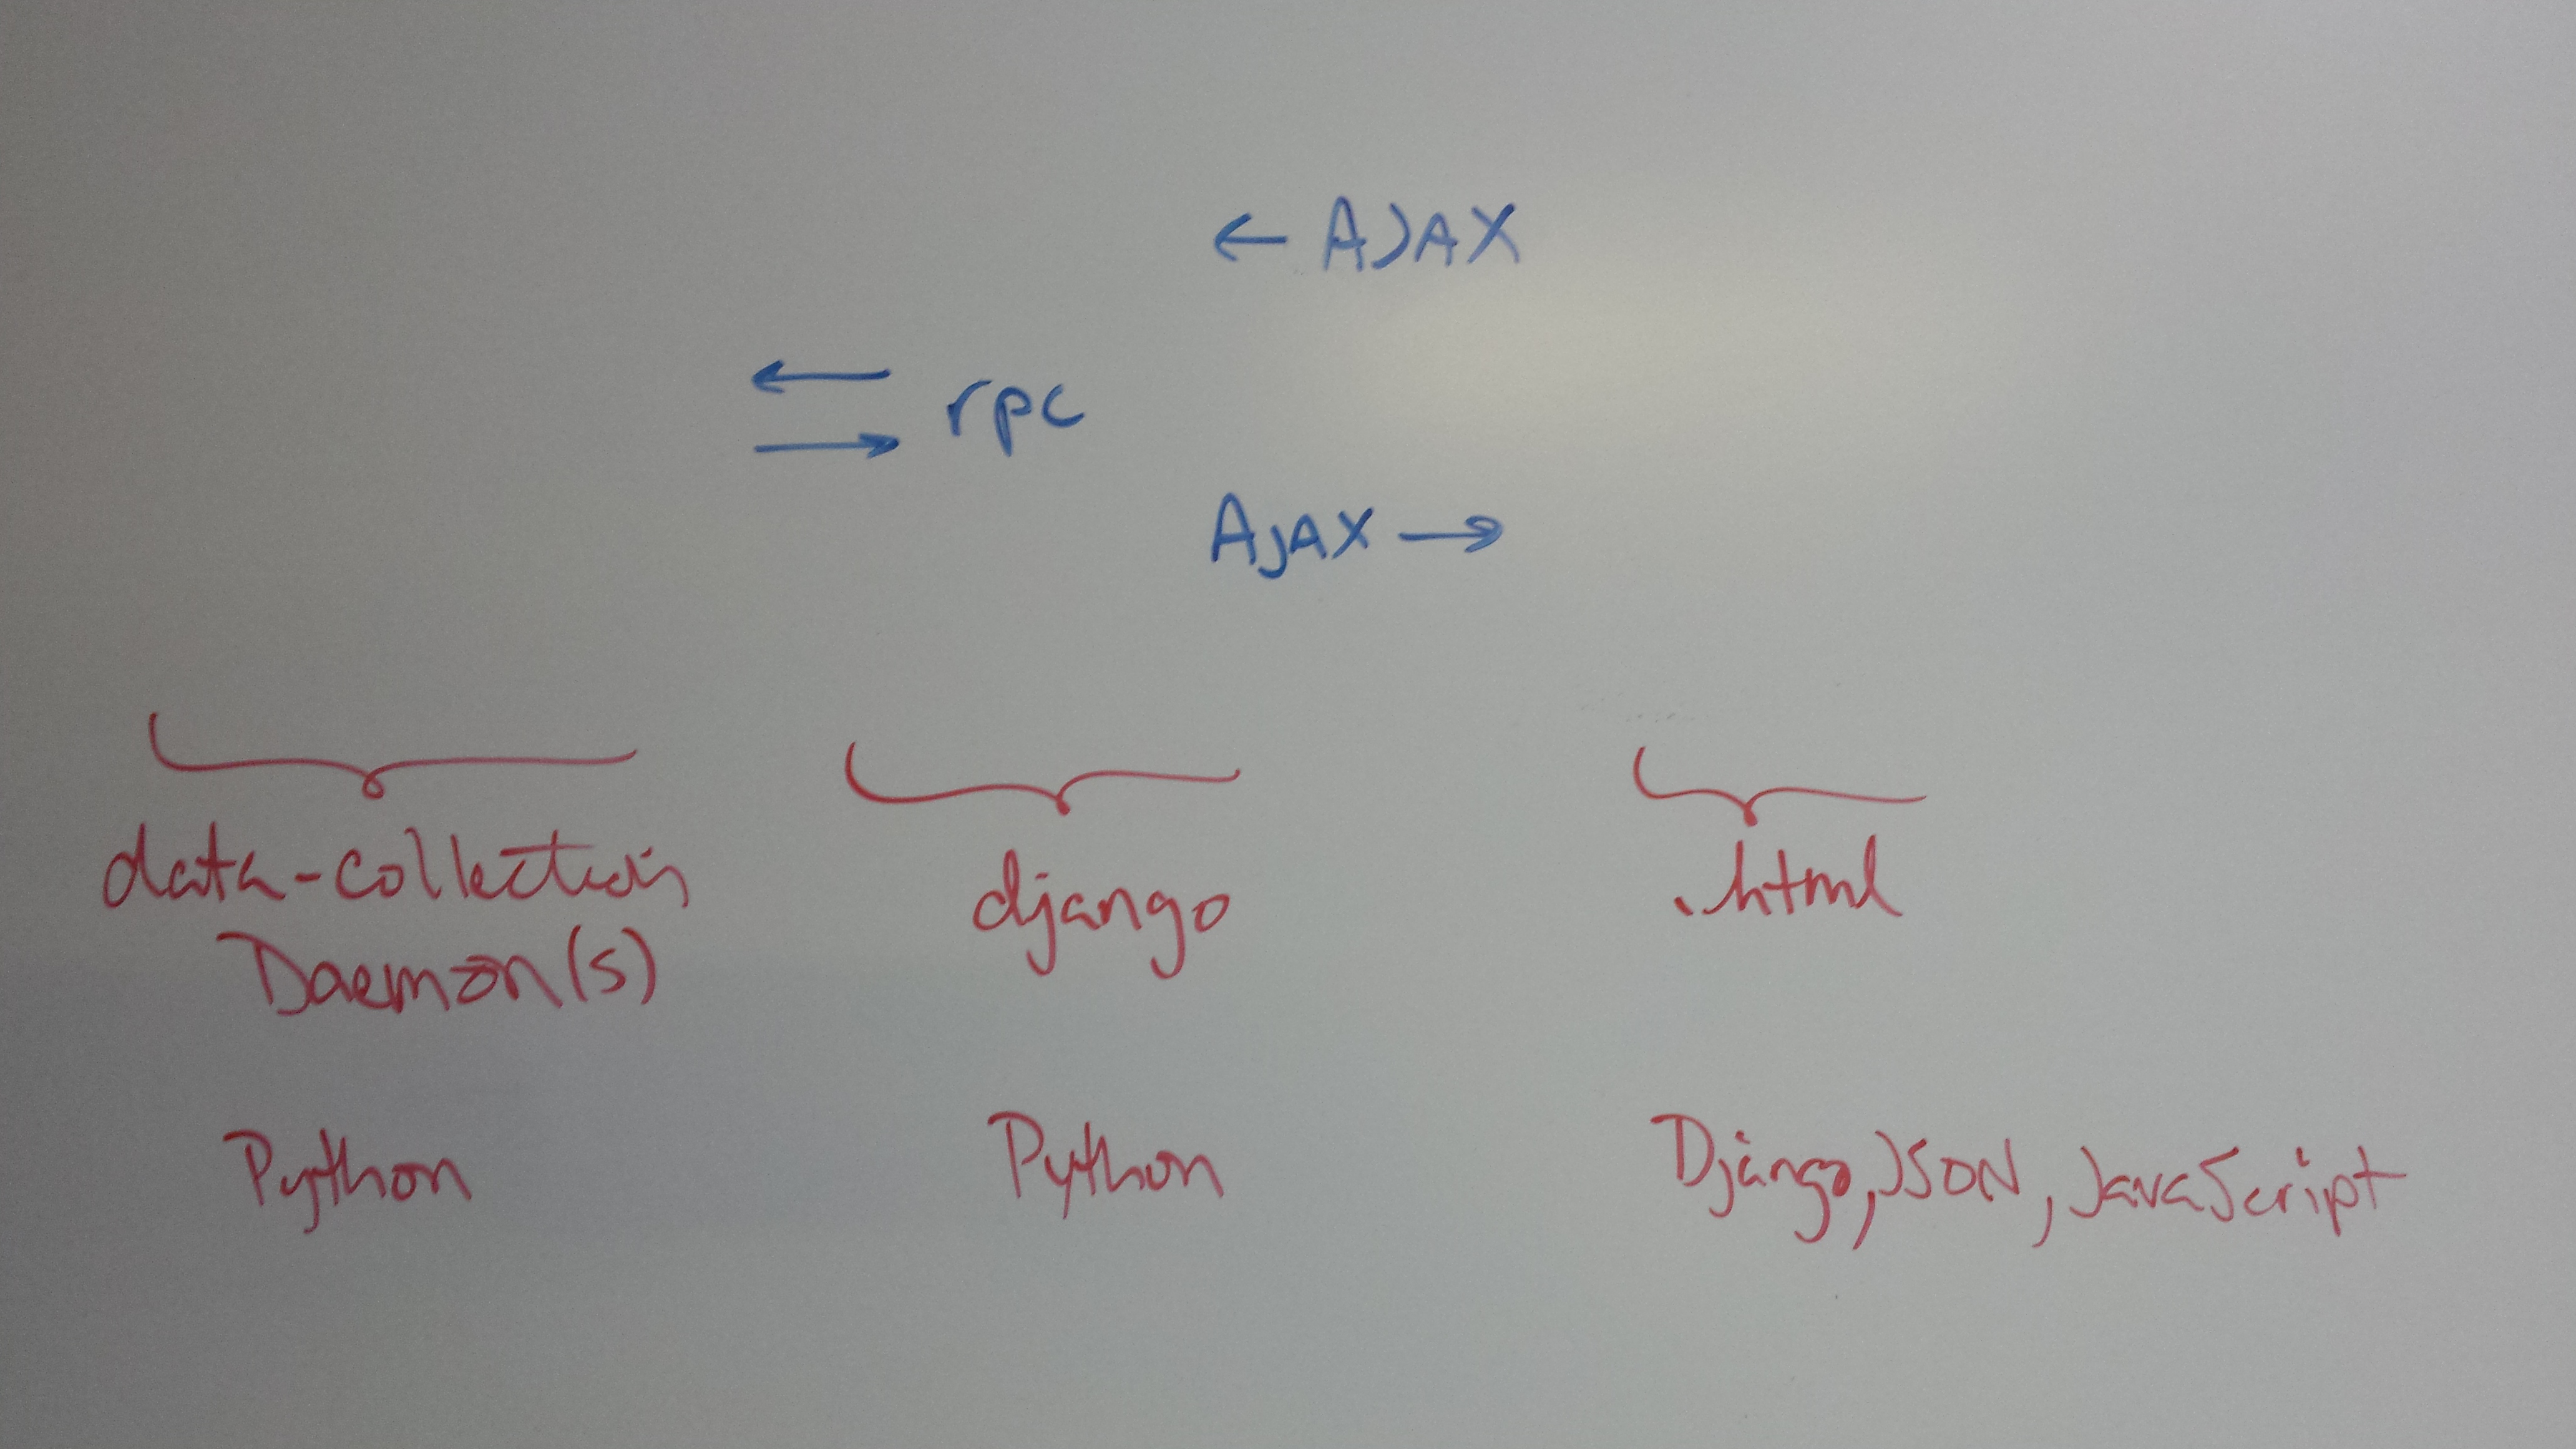 ← AJAX
← → rpc
AJAX →
data-collection django .html
Daemon(s)
Python Python Django, JSON, JavaScript